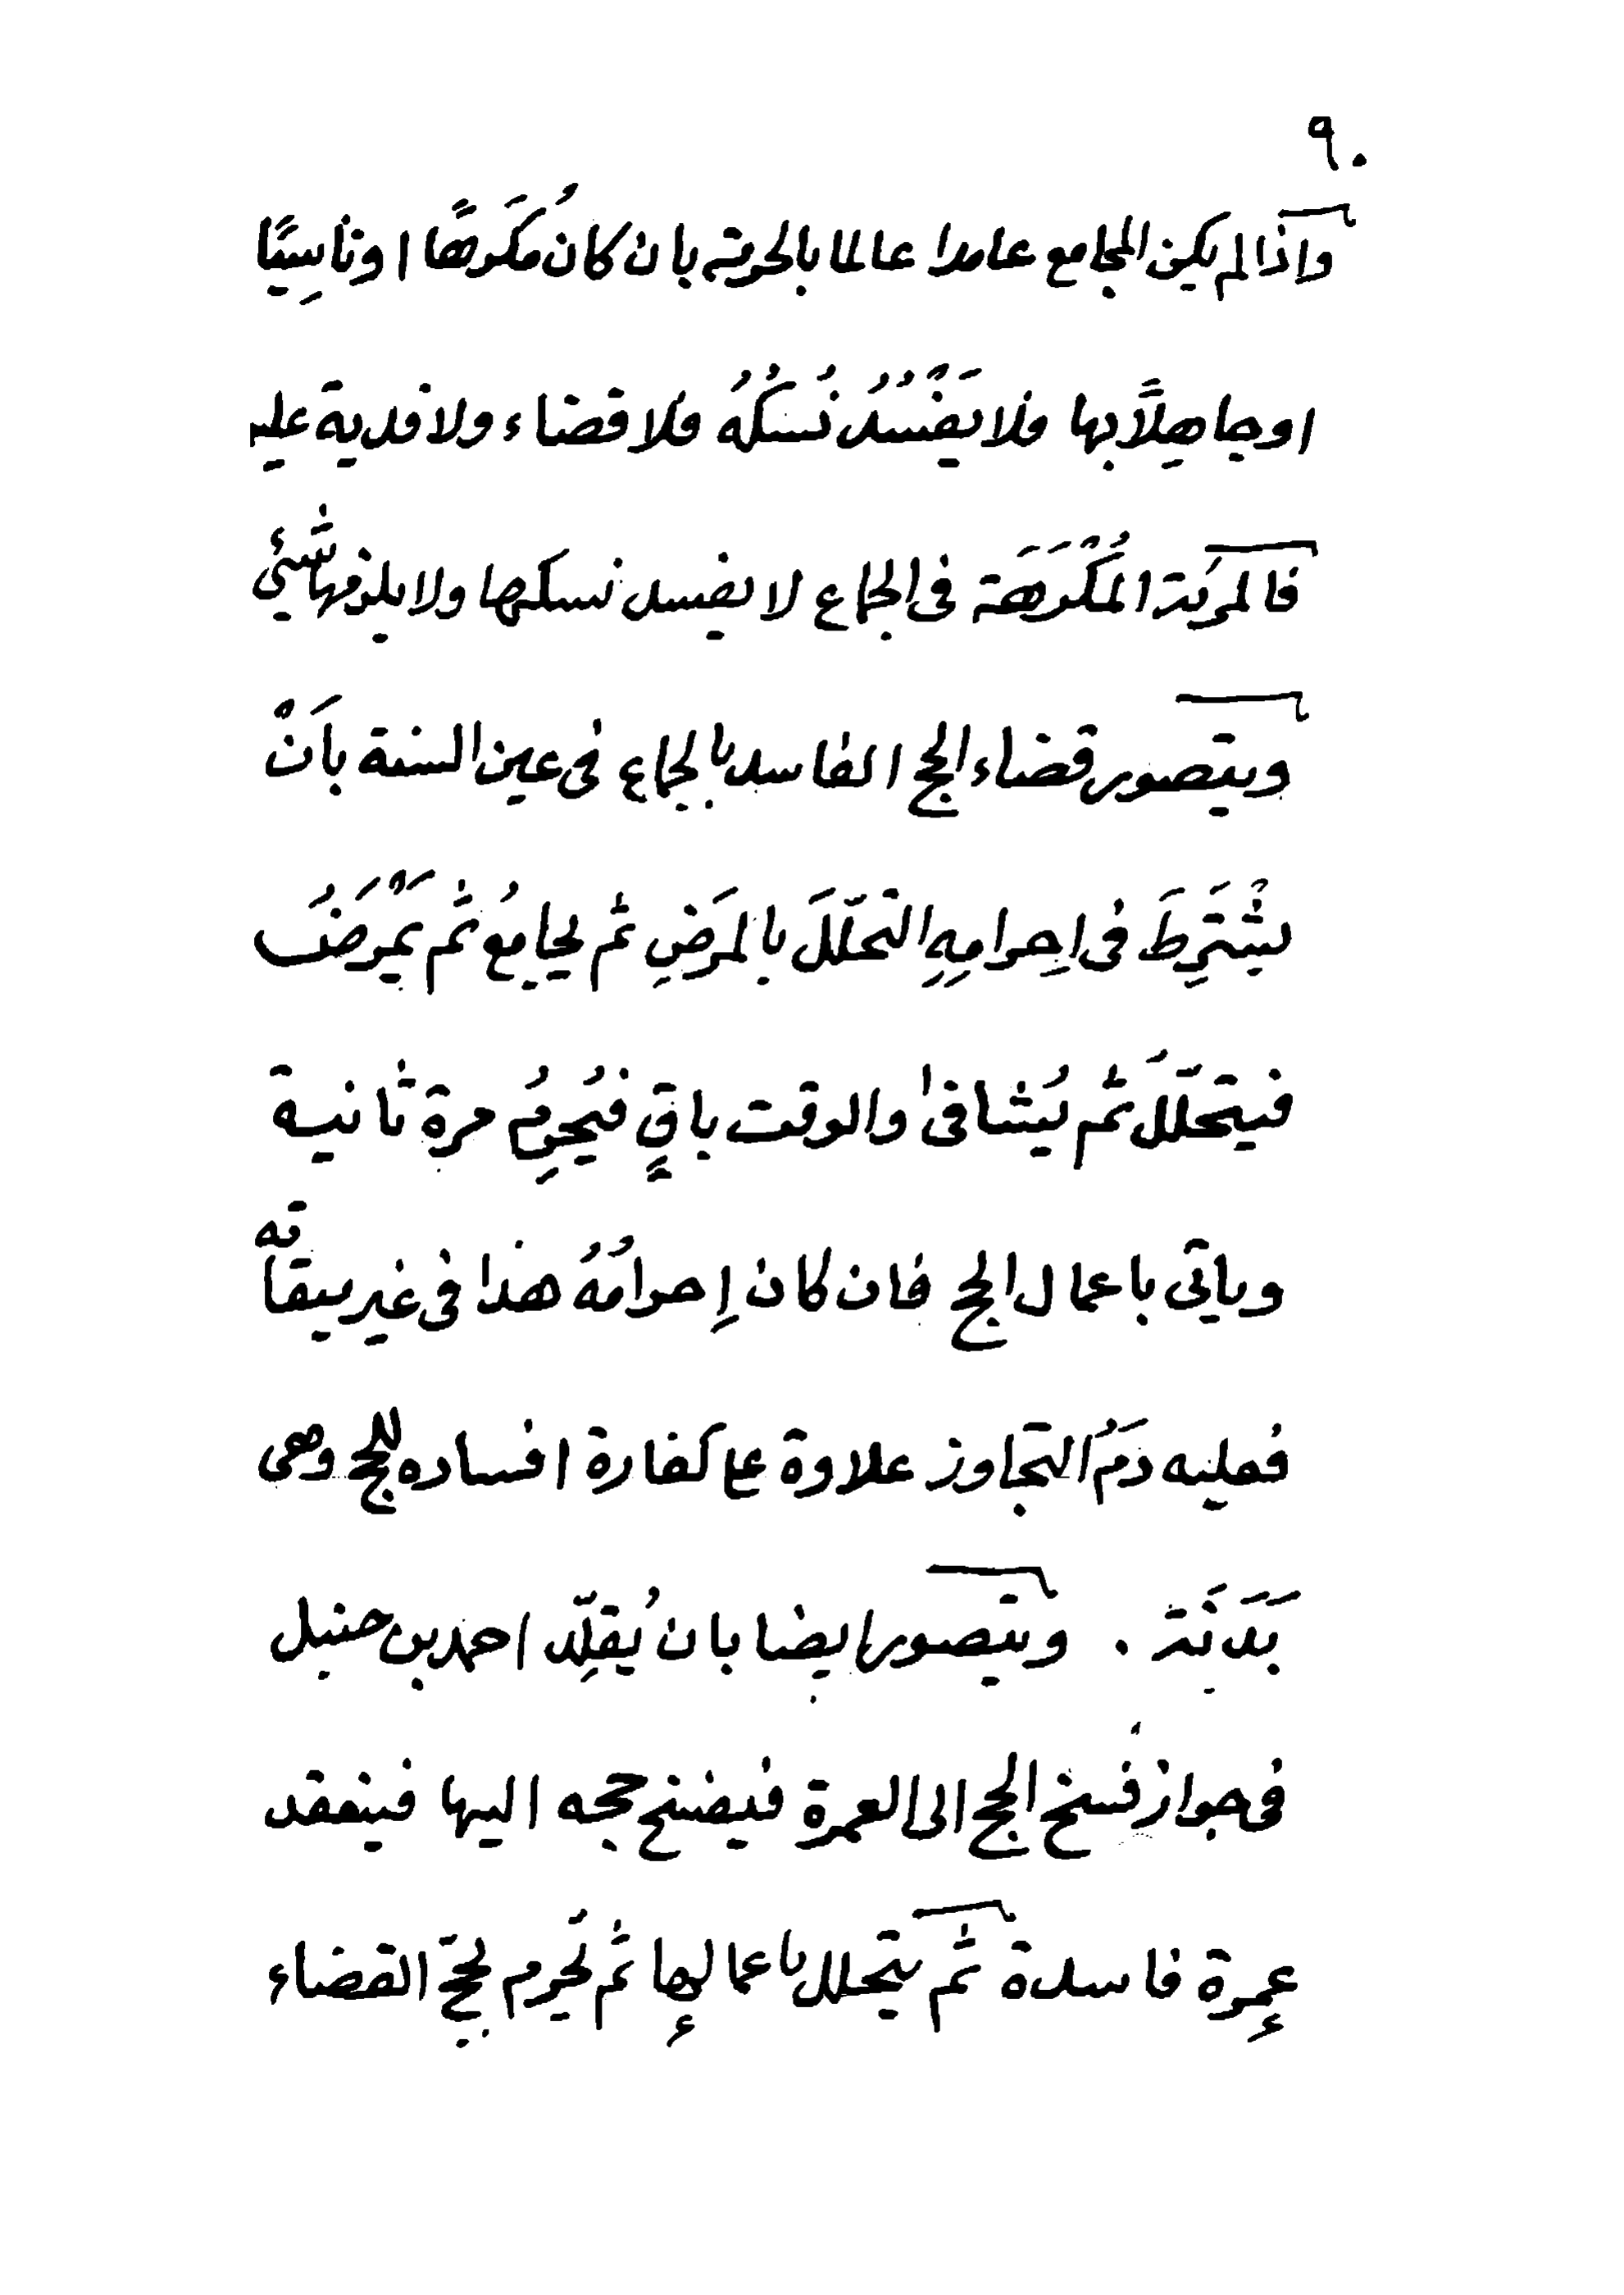 ٩٠
واذا لم يكن المجامع عامدا عالما بالحرمة بان كانُ مكَرهًا اوناسِيًا
اوجاهِلًا بها فلا يَفْسُدُ نُسُكُهُ فلا قضاء ولا فدية عليه
فالمرئة المُكْرَهَة فى الجماع لا يفسد نسكها ولا يلزمها شيئ
ويتصور قضاء الحج الفاسد بالجماع فى عين السنة بأنْ
يشْتَرِطَ فى احِرامِهِ التحلّلَ بالمرَضِ ثم يجامعُ ثم يَمْرَضُ
فيتحلّلَ ثم يُشافىٰ والوقت باقٍ فيُحرِمُ مرة ثانية
وياتى باعمال الحج فان كان إحرامُهُ هذا فى غير ميقاته
فعليه دَمُ التجاوز علاوة على كفارة افساده للحج وهى
بَدَنَة . ويتصور ايضا بان يُقلِّد احمد بن حنبل
فى جواز فسخ الحج الى العمرة فيفسخ حجه اليها فينعقد
عمرة فاسدة ثم يتحلل باعمالها ثم يُحرم بحجّ القضاء